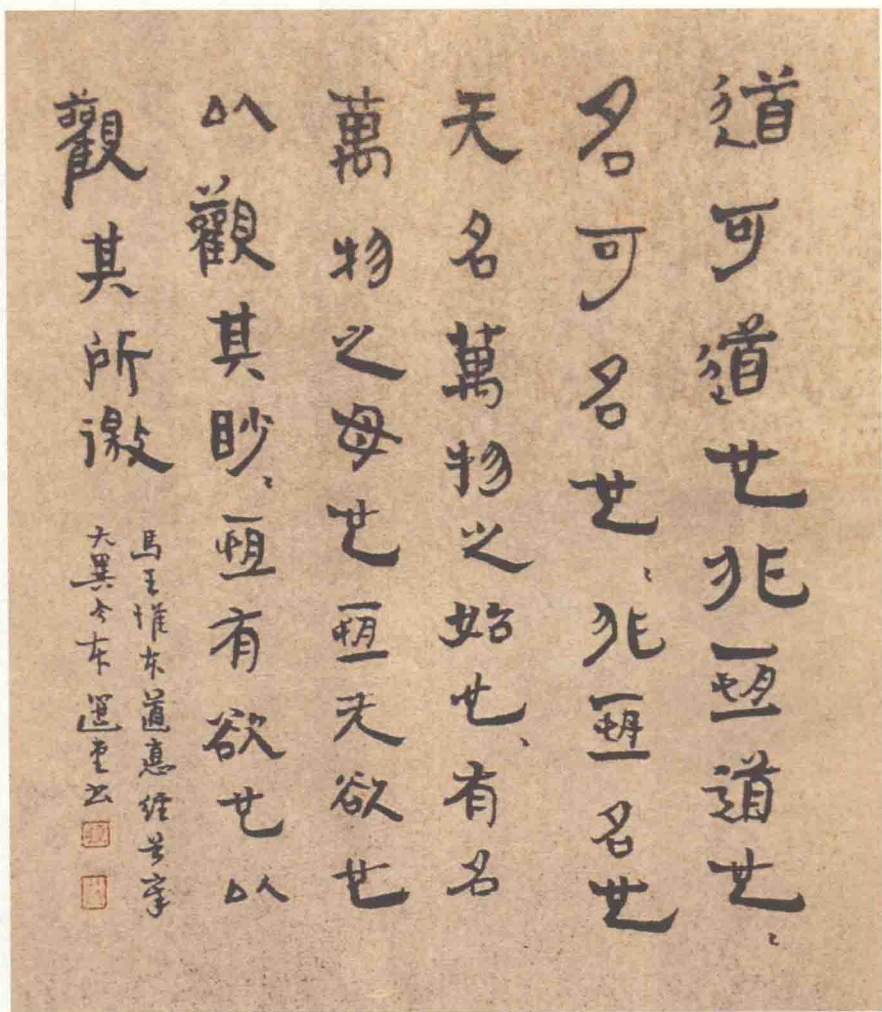 道可道也非恆道也、
名可名也、非恆名也
无名萬物之始也、有名
萬物之母也恆无欲也
以觀其眇、恆有欲也以
觀其所噭
馬王堆本道德經首章
大異今本 選堂書